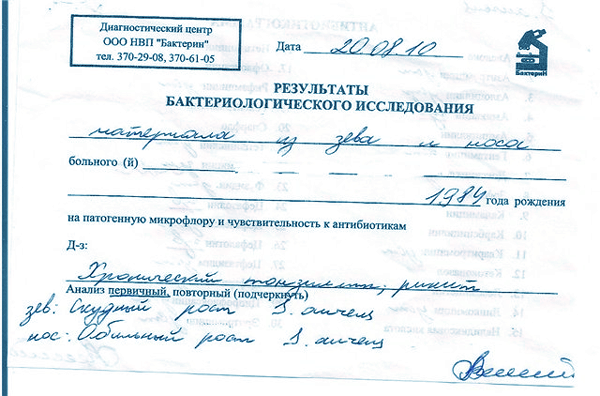 Диагностический центр
ООО НВП "Бактерин"
тел. 370-29-08, 370-61-05
Дата 20.08.10
Бактерин
РЕЗУЛЬТАТЫ
БАКТЕРИОЛОГИЧЕСКОГО ИССЛЕДОВАНИЯ
материала из зева и носа
больного (й)
1984 года рождения
на патогенную микрофлору и чувствительность к антибиотикам
Д-з:
Хронический тонзиллит, ринит
Анализ первичный, повторный (подчеркнуть)
зев: Скудный рост S.
нос: Обильный рост S.